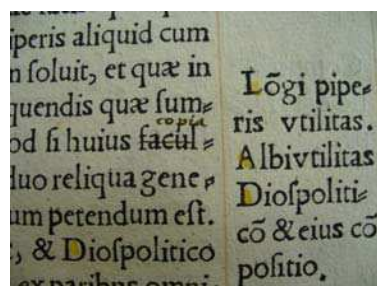 iperis aliquid cum
n ſoluit, et quæ in
quendis quæ ſum⸗
copia
od ſi huius facul⸗
duo reliqua gene⸗
um petendum eſt.
, & Dioſpolitico
ex paribus omni⸗
Lõgi pipe⸗
ris vtilitas.
Albivtilitas
Dioſpoliti⸗
cõ & eius cõ
poſitio.